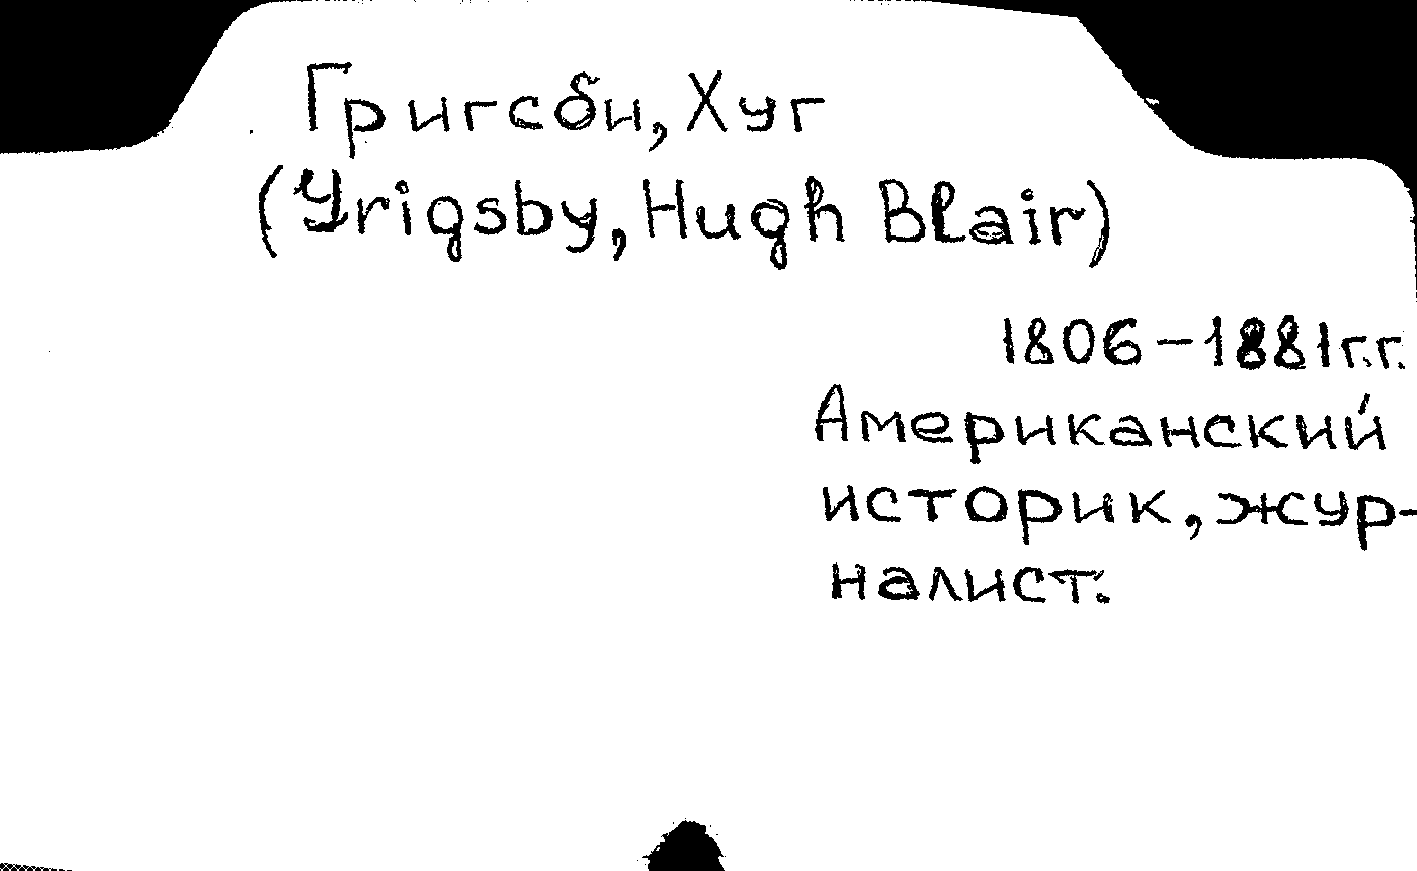 Григсби, Хуг
(Grigsby, Hugh Blair)
1806-1881г.г.
Американский
историк, жур-
налист.